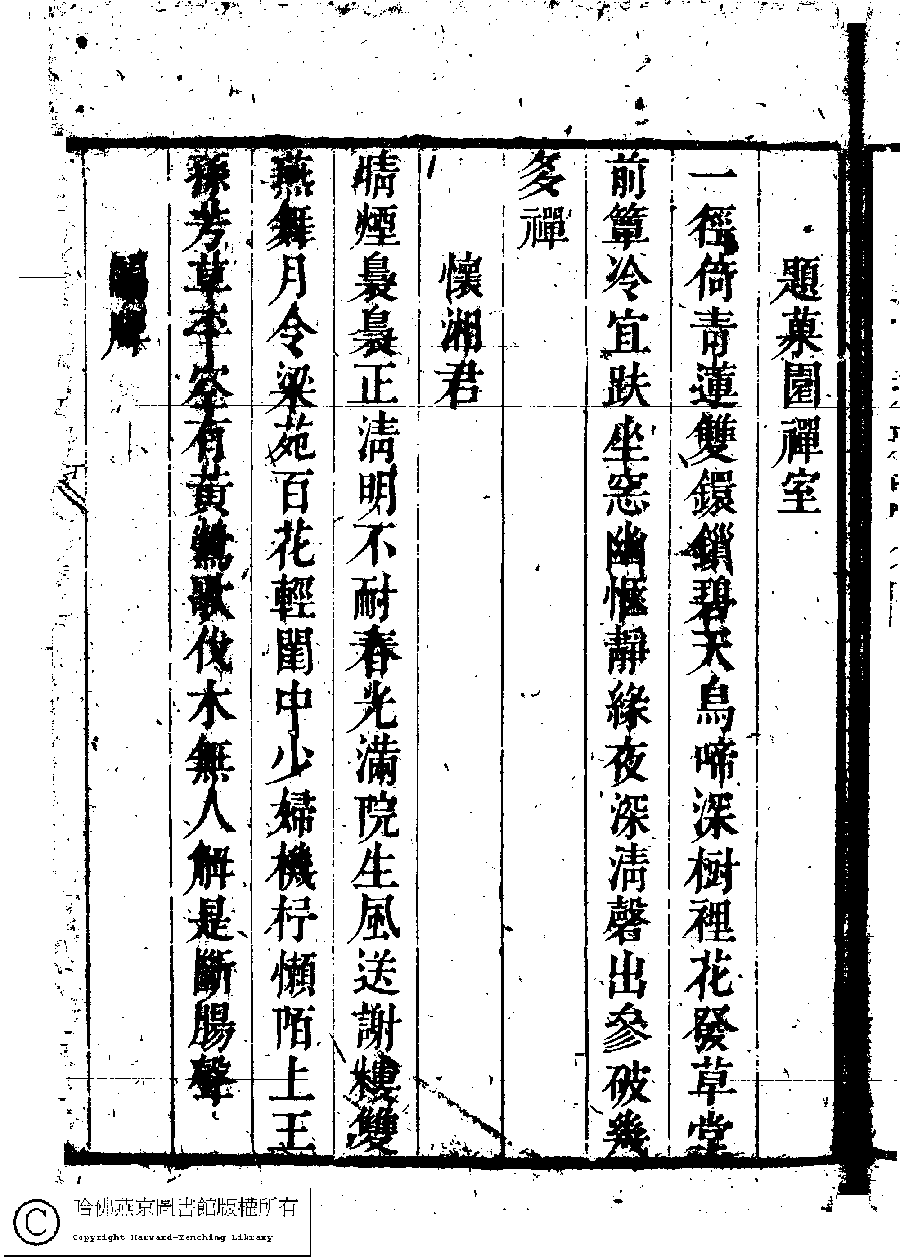 題菓園禪室
一徑倚青蓮雙鐶鎖碧天鳥啼深樹裡花發草堂
前簟冷宜趺坐窓幽愜靜緣夜深清磬出參破幾
多禪
懷湘君
晴煙裊裊正清明不耐春光滿院生風送謝樓雙
燕舞月令梁苑百花輕閨中少婦機杼懶陌上王
孫芳草有黃鶯歌伐木無人解是斷腸聲
哈佛燕京圖書館版權所有
Copyright Harvard-Yenching Library